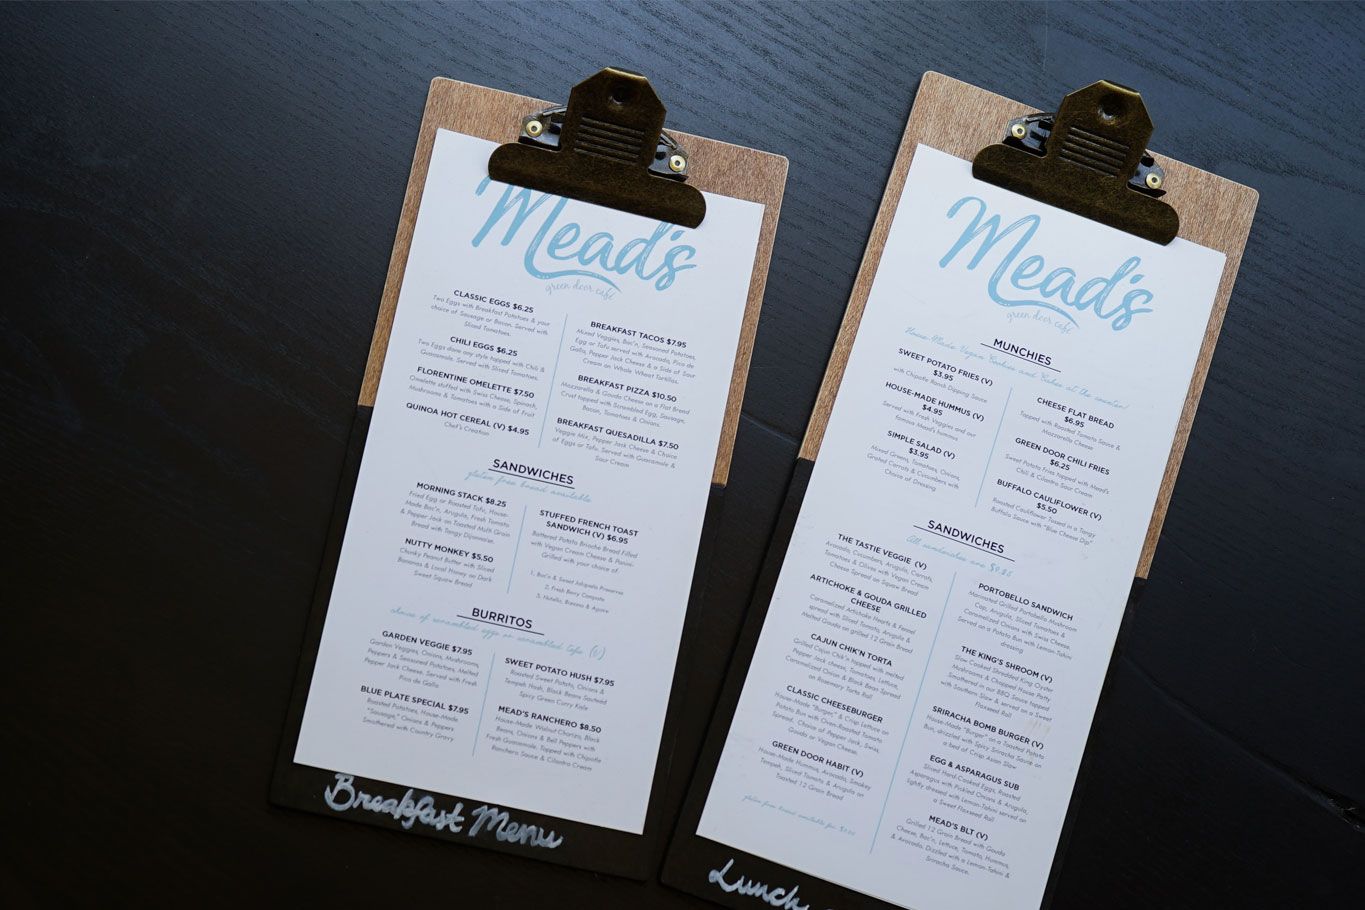 Mead's
green door cafe
CLASSIC EGGS $6.25
Two Eggs with Breakfast Potatoes & your
choice of Sausage or Bacon. Served with
Sliced Tomatoes.
CHILI EGGS $6.25
Two Eggs done any style topped with Chili &
Guacamole. Served with Sliced Tomatoes.
FLORENTINE OMELETTE $7.50
Omelette stuffed with Swiss Cheese, Spinach,
Mushrooms & Tomatoes with a Side of Fruit
QUINOA HOT CEREAL (V) $4.95
Chef's Creation
BREAKFAST TACOS $7.95
Mixed Veggies, Bac'n, Seasoned Potatoes,
Egg or Tofu served with Avocado, Pico de
Gallo, Pepper Jack Cheese & a Side of Sour
Cream on Whole Wheat Tortillas.
BREAKFAST PIZZA $10.50
Mozzarella & Gouda Cheese on a Flat Bread
Crust topped with Scrambled Egg, Sausage,
Bacon, Tomatoes & Onions.
BREAKFAST QUESADILLA $7.50
Veggie Mix, Pepper Jack Cheese & Choice
of Eggs or Tofu. Served with Guacamole &
Sour Cream
SANDWICHES
gluten free bread available
MORNING STACK $8.25
Fried Egg or Roasted Tofu, House-
Made Bac'n, Arugula, Fresh Tomato
& Pepper Jack on Toasted Multi Grain
Bread with Tangy Dijonnaise.
NUTTY MONKEY $5.50
Chunky Peanut Butter with Sliced
Bananas & Local Honey on Dark
Sweet Squaw Bread
STUFFED FRENCH TOAST
SANDWICH (V) $6.95
Battered Potato Brioche Bread Filled
with Vegan Cream Cheese & Panini-
Grilled with your choice of:
1. Bac'n & Sweet Jalapeño Preserves
2. Fresh Berry Compote
3. Nutella, Banana & Agave
BURRITOS
choice of scrambled eggs or scrambled tofu (V)
GARDEN VEGGIE $7.95
Garden Veggies, Onions, Mushrooms,
Peppers & Seasoned Potatoes, Melted
Pepper Jack Cheese. Served with Fresh
Pico de Gallo
BLUE PLATE SPECIAL $7.95
Roasted Potatoes, House-Made
"Sausage," Onions & Peppers
Smothered with Country Gravy
SWEET POTATO HUSH $7.95
Roasted Sweet Potato, Onions &
Tempeh Hash, Black Beans Sautéed
Spicy Green Curry Kale
MEAD'S RANCHERO $8.50
House-Made Walnut Chorizo, Black
Beans, Onions & Bell Peppers with
Fresh Guacamole, Topped with Chipotle
Ranchero Sauce & Cilantro Cream
Breakfast Menu
Mead's
green door cafe
MUNCHIES
House-Made Vegan Cookies and Cakes at the counter!
SWEET POTATO FRIES (V)
$3.95
with Chipotle Ranch Dipping Sauce
HOUSE-MADE HUMMUS (V)
$4.95
Served with Fresh Veggies and our
famous Mead's hummus
SIMPLE SALAD (V)
$3.95
Mixed Greens, Tomatoes, Onions,
Grated Carrots & Cucumbers with
Choice of Dressing
CHEESE FLAT BREAD
$6.95
Topped with Roasted Tomato Sauce &
Mozzarella Cheese
GREEN DOOR CHILI FRIES
$6.25
Sweet Potato Fries topped with Mead's
Chili & Cilantro Sour Cream
BUFFALO CAULIFLOWER (V)
$5.50
Roasted Cauliflower Tossed in a Tangy
Buffalo Sauce with "Blue Cheese Dip"
SANDWICHES
All sandwiches are $9.25
THE TASTIE VEGGIE (V)
Avocado, Cucumbers, Arugula, Carrots,
Tomatoes & Olives with Vegan Cream
Cheese Spread on Squaw Bread
ARTICHOKE & GOUDA GRILLED
CHEESE
Caramelized Artichoke Hearts & Fennel
spread with Sliced Tomato, Arugula &
Melted Gouda on grilled 12 Grain Bread
CAJUN CHIK'N TORTA
Grilled Cajun Chik'n topped with melted
Pepper Jack cheese, Tomatoes, Lettuce
Caramelized Onion & Black Bean Spread
on Rosemary Torta Roll
CLASSIC CHEESEBURGER
House-Made "Burger" & Crisp Lettuce on
Potato Bun with Oven-Roasted Tomato
Spread, Choice of Pepper Jack, Swiss,
Gouda or Vegan Cheese.
GREEN DOOR HABIT (V)
House-Made Hummus, Avocado, Smokey
Tempeh, Sliced Tomato & Arugula on
Toasted 12 Grain Bread
gluten free bread available for
PORTOBELLO SANDWICH
Marinated Grilled Portobello Mushroom
Cap, Arugula, Sliced Tomatoes &
Caramelized Onions with Swiss Cheese.
Served on a Potato Bun with Lemon-Tahini
dressing
THE KING'S SHROOM (V)
Slow Cooked Shredded King Oyster
Mushrooms & Chipotle House Patty
Smothered in our BBQ Sauce topped
with Southern Slaw & served on a Sweet
Flaxseed Roll
SRIRACHA BOMB BURGER (V)
House-Made "Burger" on a Toasted Potato
Bun, drizzled with Spicy Sriracha Sauce on
a bed of Crisp Asian Slaw
EGG & ASPARAGUS SUB
Sliced Hard-Cooked Eggs, Roasted
Asparagus with Pickled Onions & Arugula,
lightly dressed with Lemon-Tahini served on
a Sweet Flaxseed Roll
MEAD'S BLT (V)
Grilled 12 Grain Bread with Gouda
Cheese, Bac'n, Lettuce, Tomato, Hummus,
& Avocado. Drizzled with a Lemon-Tahini &
Sriracha Sauce.
Lunch